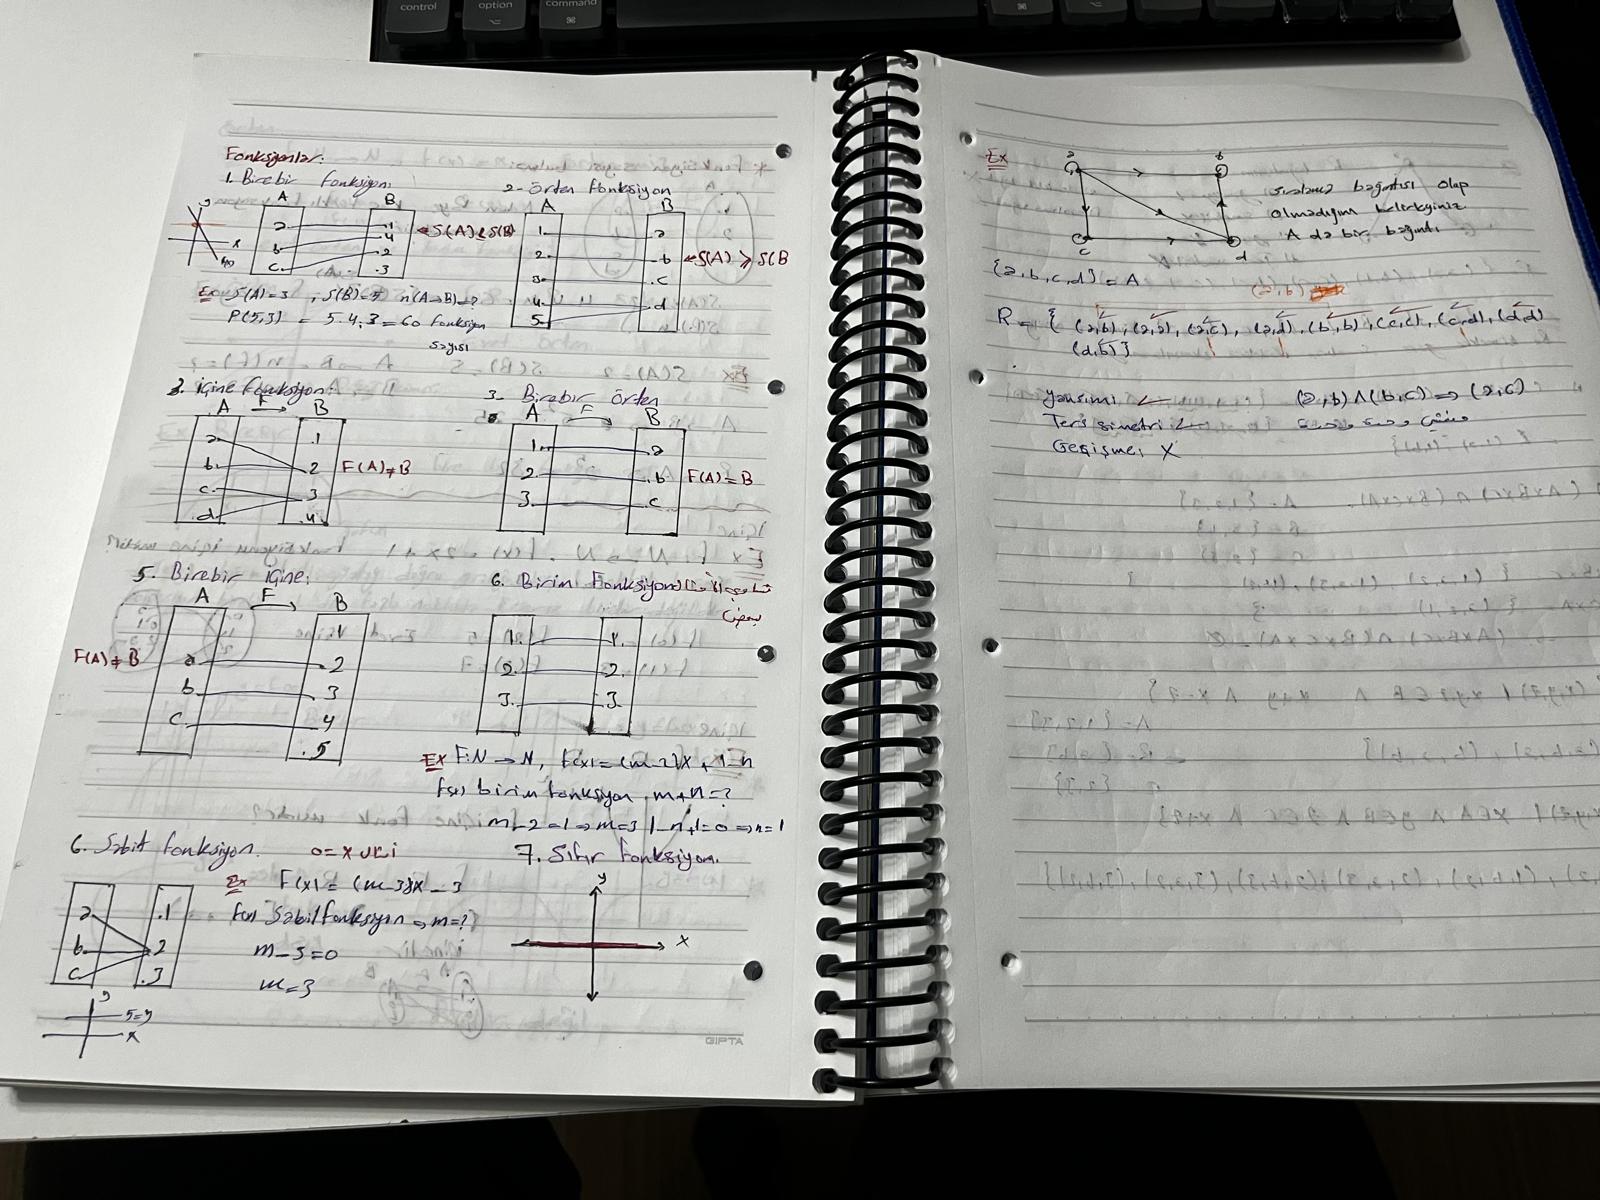 control
option
⌥
⌘
⌘
⌥
Fonksiyonlar:
1. Birebir fonksiyon:
A
B
a
b
c
.1
4
.2
.3
y
x
S(A) ≤ S(B)
Ex S(A)=3 , S(B)=5 n(A→B)=?
P(5,3) = 5.4.3=60 fonksiyon
sayısı
2- örten fonksiyon
A
B
1
2
3
4
5
a
b
.c
d
S(A) ≥ S(B
3. içine fonksiyon:
A F B
a
b
c
.d
.1
2
3
.4
F(A)≠B
3- Birebir örten
A F B
1
2
3
a
b
c
F(A)=B
5. Birebir içine:
A F B
a
b
c
1
2
3
4
.5
F(A)≠B
6. Birim Fonksiyon
1.
2.
3.
1.
2.
3.
Ex F:N→N, F(x)=(m-2)x+1-n
F(x) birim fonksiyon m+n=?
m-2=1 → m=3 1-n+1=0 → n=1
6. Sabit fonksiyon.
a
b
c
.1
2
.3
5=y
x
Ex F(x) = (m-3)x-3
F(x) Sabit fonksiyon → m=?
m-3=0
m=3
7. Sıfır fonksiyon.
y
x
GIPTA
Ex
a
b
c
d
sıralama bağıntısı olup
olmadığını belirleyiniz
A da bir bağıntı
{a,b,c,d}=A
(a,b)
R={ (a,b), (a,a), (a,c), (a,d), (b,b), (c,c), (c,d), (d,d)
(d,b)}
yansıma
Ters simetri
Geçişme: X
(a,b)∧(b,c)⇒(a,c)